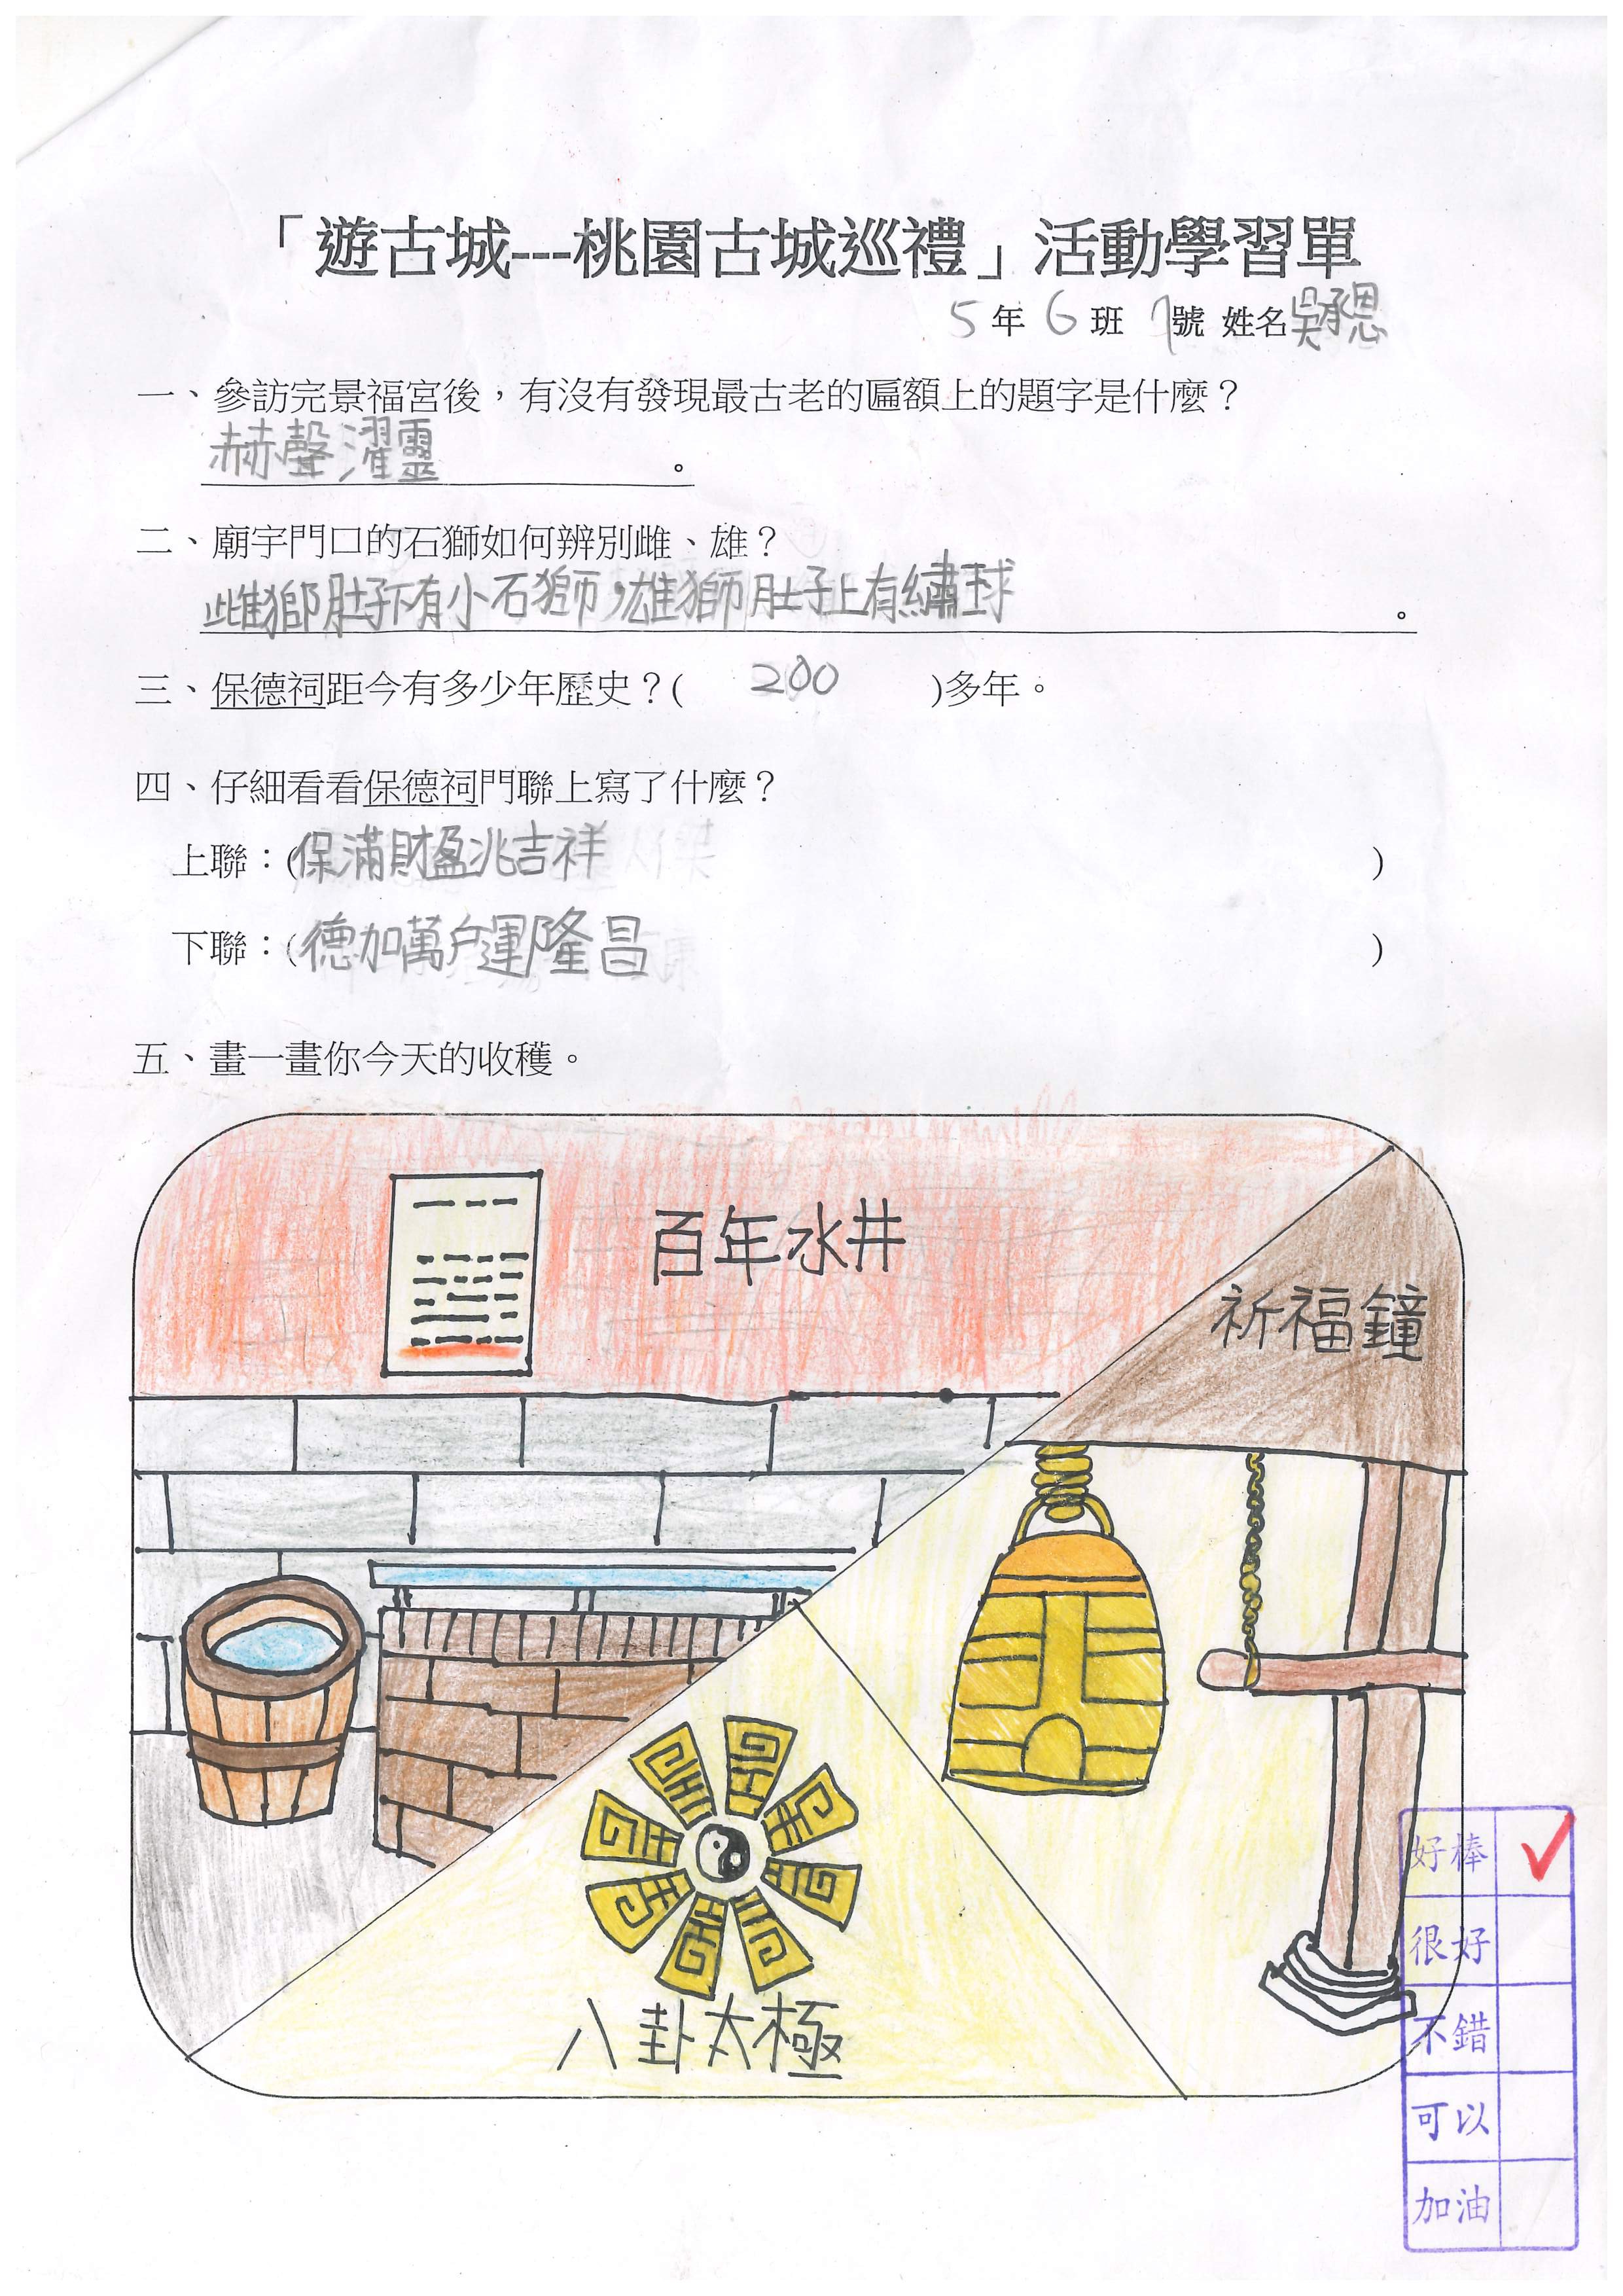 「遊古城---桃園古城巡禮」活動學習單
5 年 6 班 7號 姓名吳承恩
一、參訪完景福宮後，有沒有發現最古老的匾額上的題字是什麼？
赫聲濯靈 。
二、廟宇門口的石獅如何辨別雌、雄？
雌獅肚子下有小石獅，雄獅肚子上有繡球 。
三、保德祠距今有多少年歷史？( 200 )多年。
四、仔細看看保德祠門聯上寫了什麼？
上聯：(保滿財盈兆吉祥 )
下聯：(德加萬戶運隆昌 )
五、畫一畫你今天的收穫。
百年水井
祈福鐘
八卦太極
好棒 ✓
很好
不錯
可以
加油